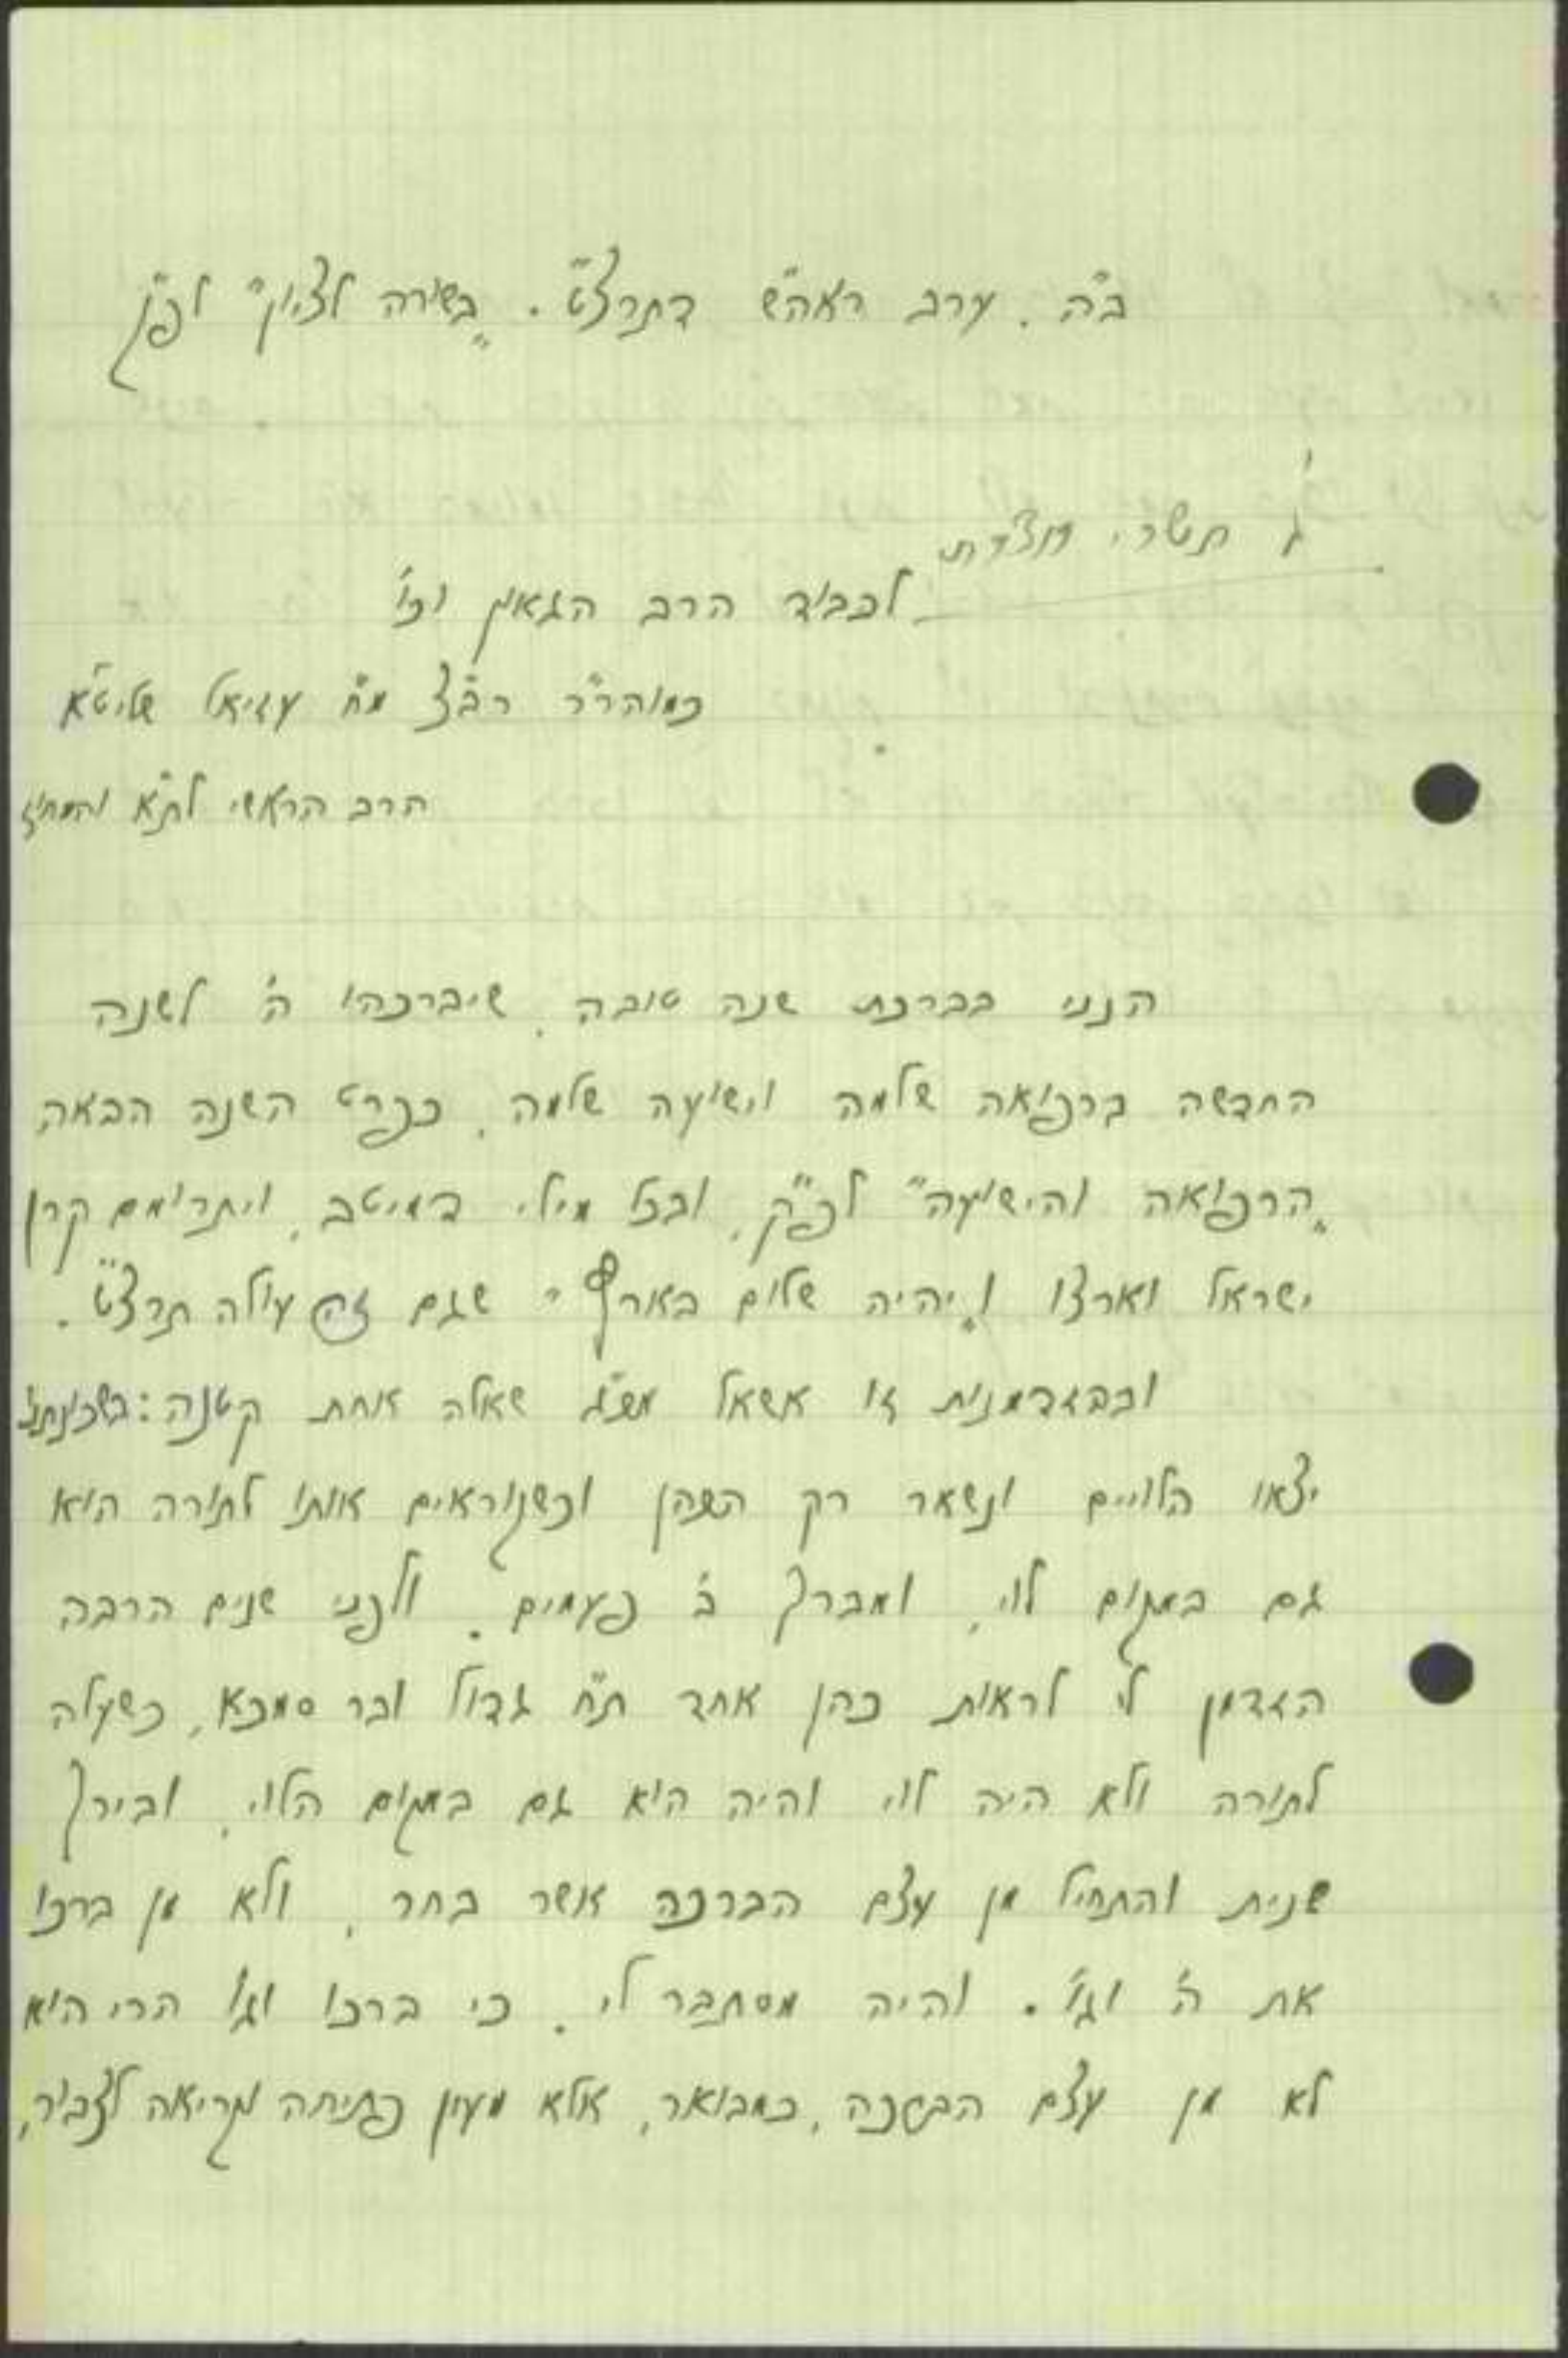 ב"ה. ערב ראה"ש דתרצ"ט. "בשורה לציון" לפ"ק
ג' תשרי תרצ"ט
לכבוד הרב הגאון וכו'
כמוהר"ר רב"צ מ"ח עזיאל שליט"א
הרב הראשי לת"א והמחוז
הנני בברכת שנה טובה, שיברכהו ה' לשנה
החדשה ברפואה שלמה וישועה שלמה, כפרט השנה הבאה
"הרפואה והישועה" לפ"ק, ובכל מילי דמיטב, ויתרומם קרן
ישראל וארצו ו"יהיה שלום בארץ" שגם זה עולה תרצ"ט.
ובהזדמנות זו אשאל מע"ג שאלה אחת קטנה: בשכונתנו
יצאו הלויים ונשאר רק הכהן וכשקוראים אותו לתורה הוא
גם במקום לוי, ומברך ב' פעמים. ולפני שנים הרבה
הזדמן לי לראות כהן אחד ת"ח גדול ובר סמכא, כשעלה
לתורה ולא היה לוי והיה הוא גם במקום הלוי, ובירך
שנית והתחיל מן עצם הברכה אשר בחר, ולא מן ברכו
את ה' וגו'. והיה מסתבר לי. כי ברכו וגו' הרי הוא
לא מן עצם הברכה, כמבואר, אלא מעין פתיחה וקריאה לצבור,